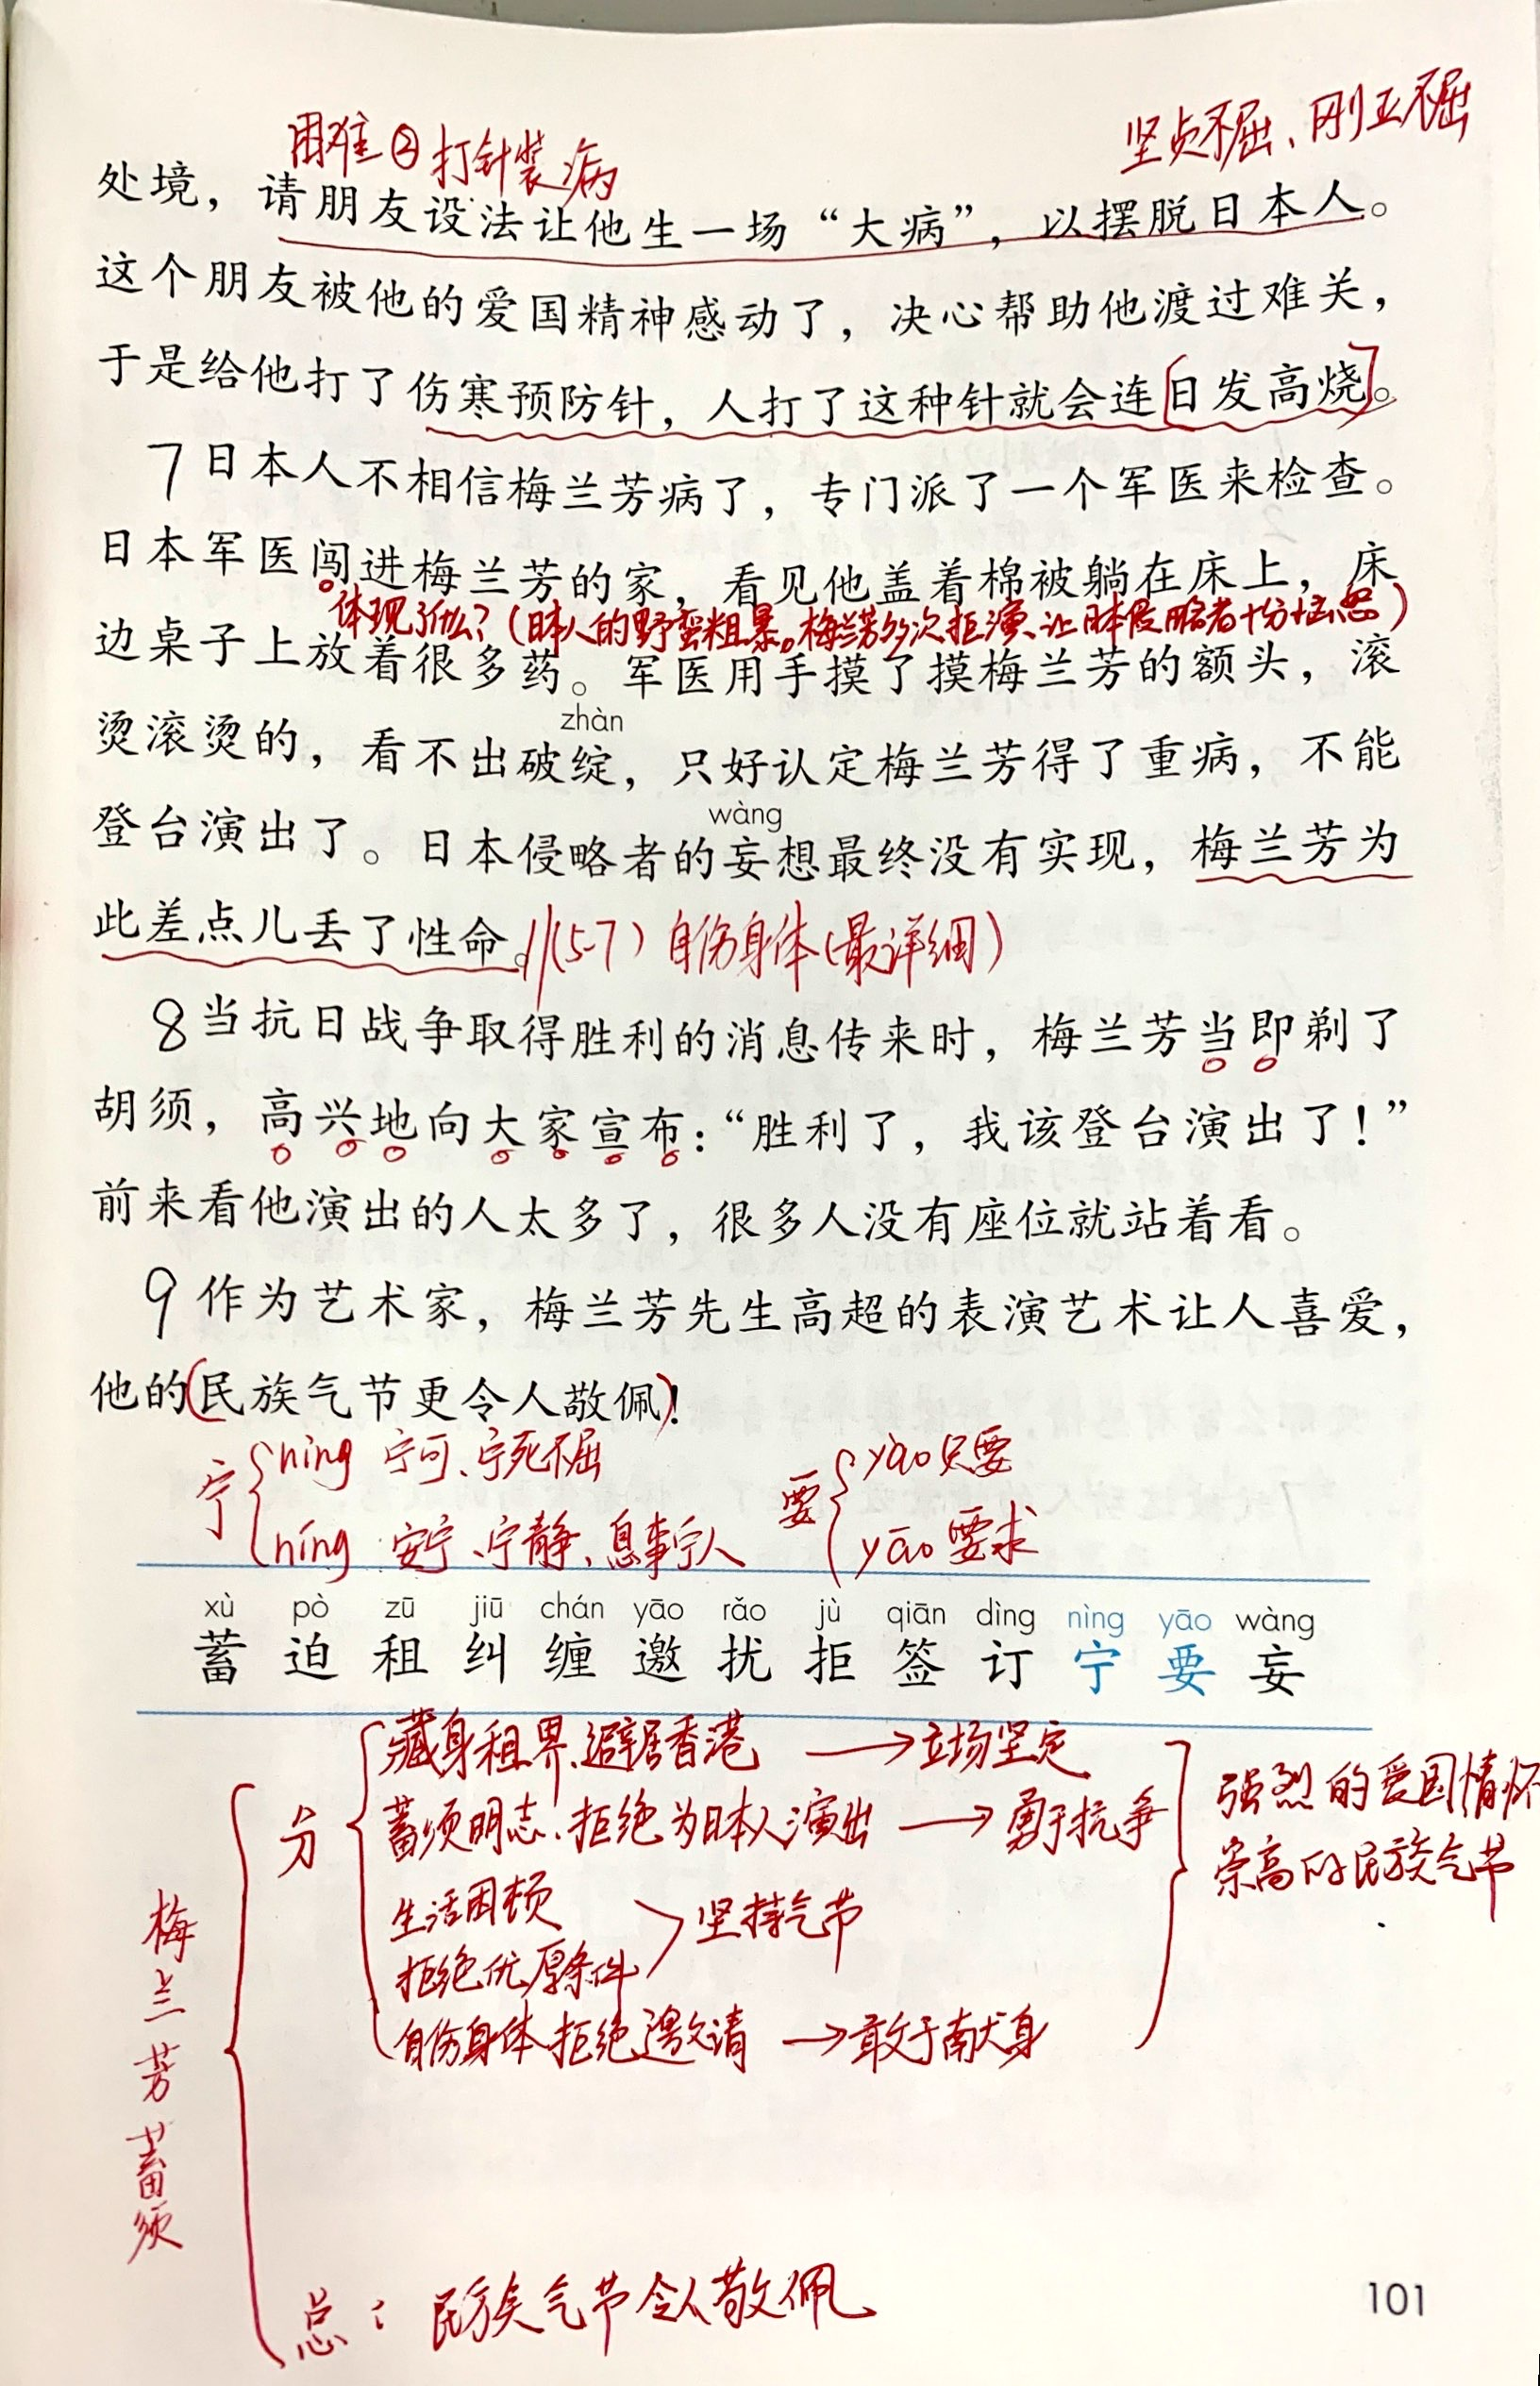 困难② 打针装病
坚贞不屈、刚正不屈
处境，请朋友设法让他生一场“大病”，以摆脱日本人。
这个朋友被他的爱国精神感动了，决心帮助他渡过难关，
于是给他打了伤寒预防针，人打了这种针就会连[日发高烧]。
7 日本人不相信梅兰芳病了，专门派了一个军医来检查。
日本军医闯进梅兰芳的家，看见他盖着棉被躺在床上，床
体现了什么？（日本人的野蛮粗暴。梅兰芳多次拒演、让日本侵略者十分恼怒）
边桌子上放着很多药。军医用手摸了摸梅兰芳的额头，滚
zhàn
烫滚烫的，看不出破绽，只好认定梅兰芳得了重病，不能
wàng
登台演出了。日本侵略者的妄想最终没有实现，梅兰芳为
此差点儿丢了性命。//(5-7）自伤身体（最详细）
8 当抗日战争取得胜利的消息传来时，梅兰芳当即剃了
胡须，高兴地向大家宣布：“胜利了，我该登台演出了！”
前来看他演出的人太多了，很多人没有座位就站着看。
9 作为艺术家，梅兰芳先生高超的表演艺术让人喜爱，
他的(民族气节更令人敬佩)!
宁 { nìng 宁可、宁死不屈
níng 安宁、宁静、息事宁人
要 { yào 只要
yāo 要求
xù pò zū jiū chán yāo rǎo jù qiān dìng nìng yāo wàng
蓄 迫 租 纠 缠 邀 扰 拒 签 订 宁 要 妄
梅兰芳蓄须
分
藏身租界、避居香港 → 立场坚定
蓄须明志、拒绝为日本人演出 → 勇于抗争
生活困顿
拒绝优厚条件
坚持气节
自伤身体、拒绝邀请 → 敢于献身
强烈的爱国情怀
崇高的民族气节
总：民族气节令人敬佩
101